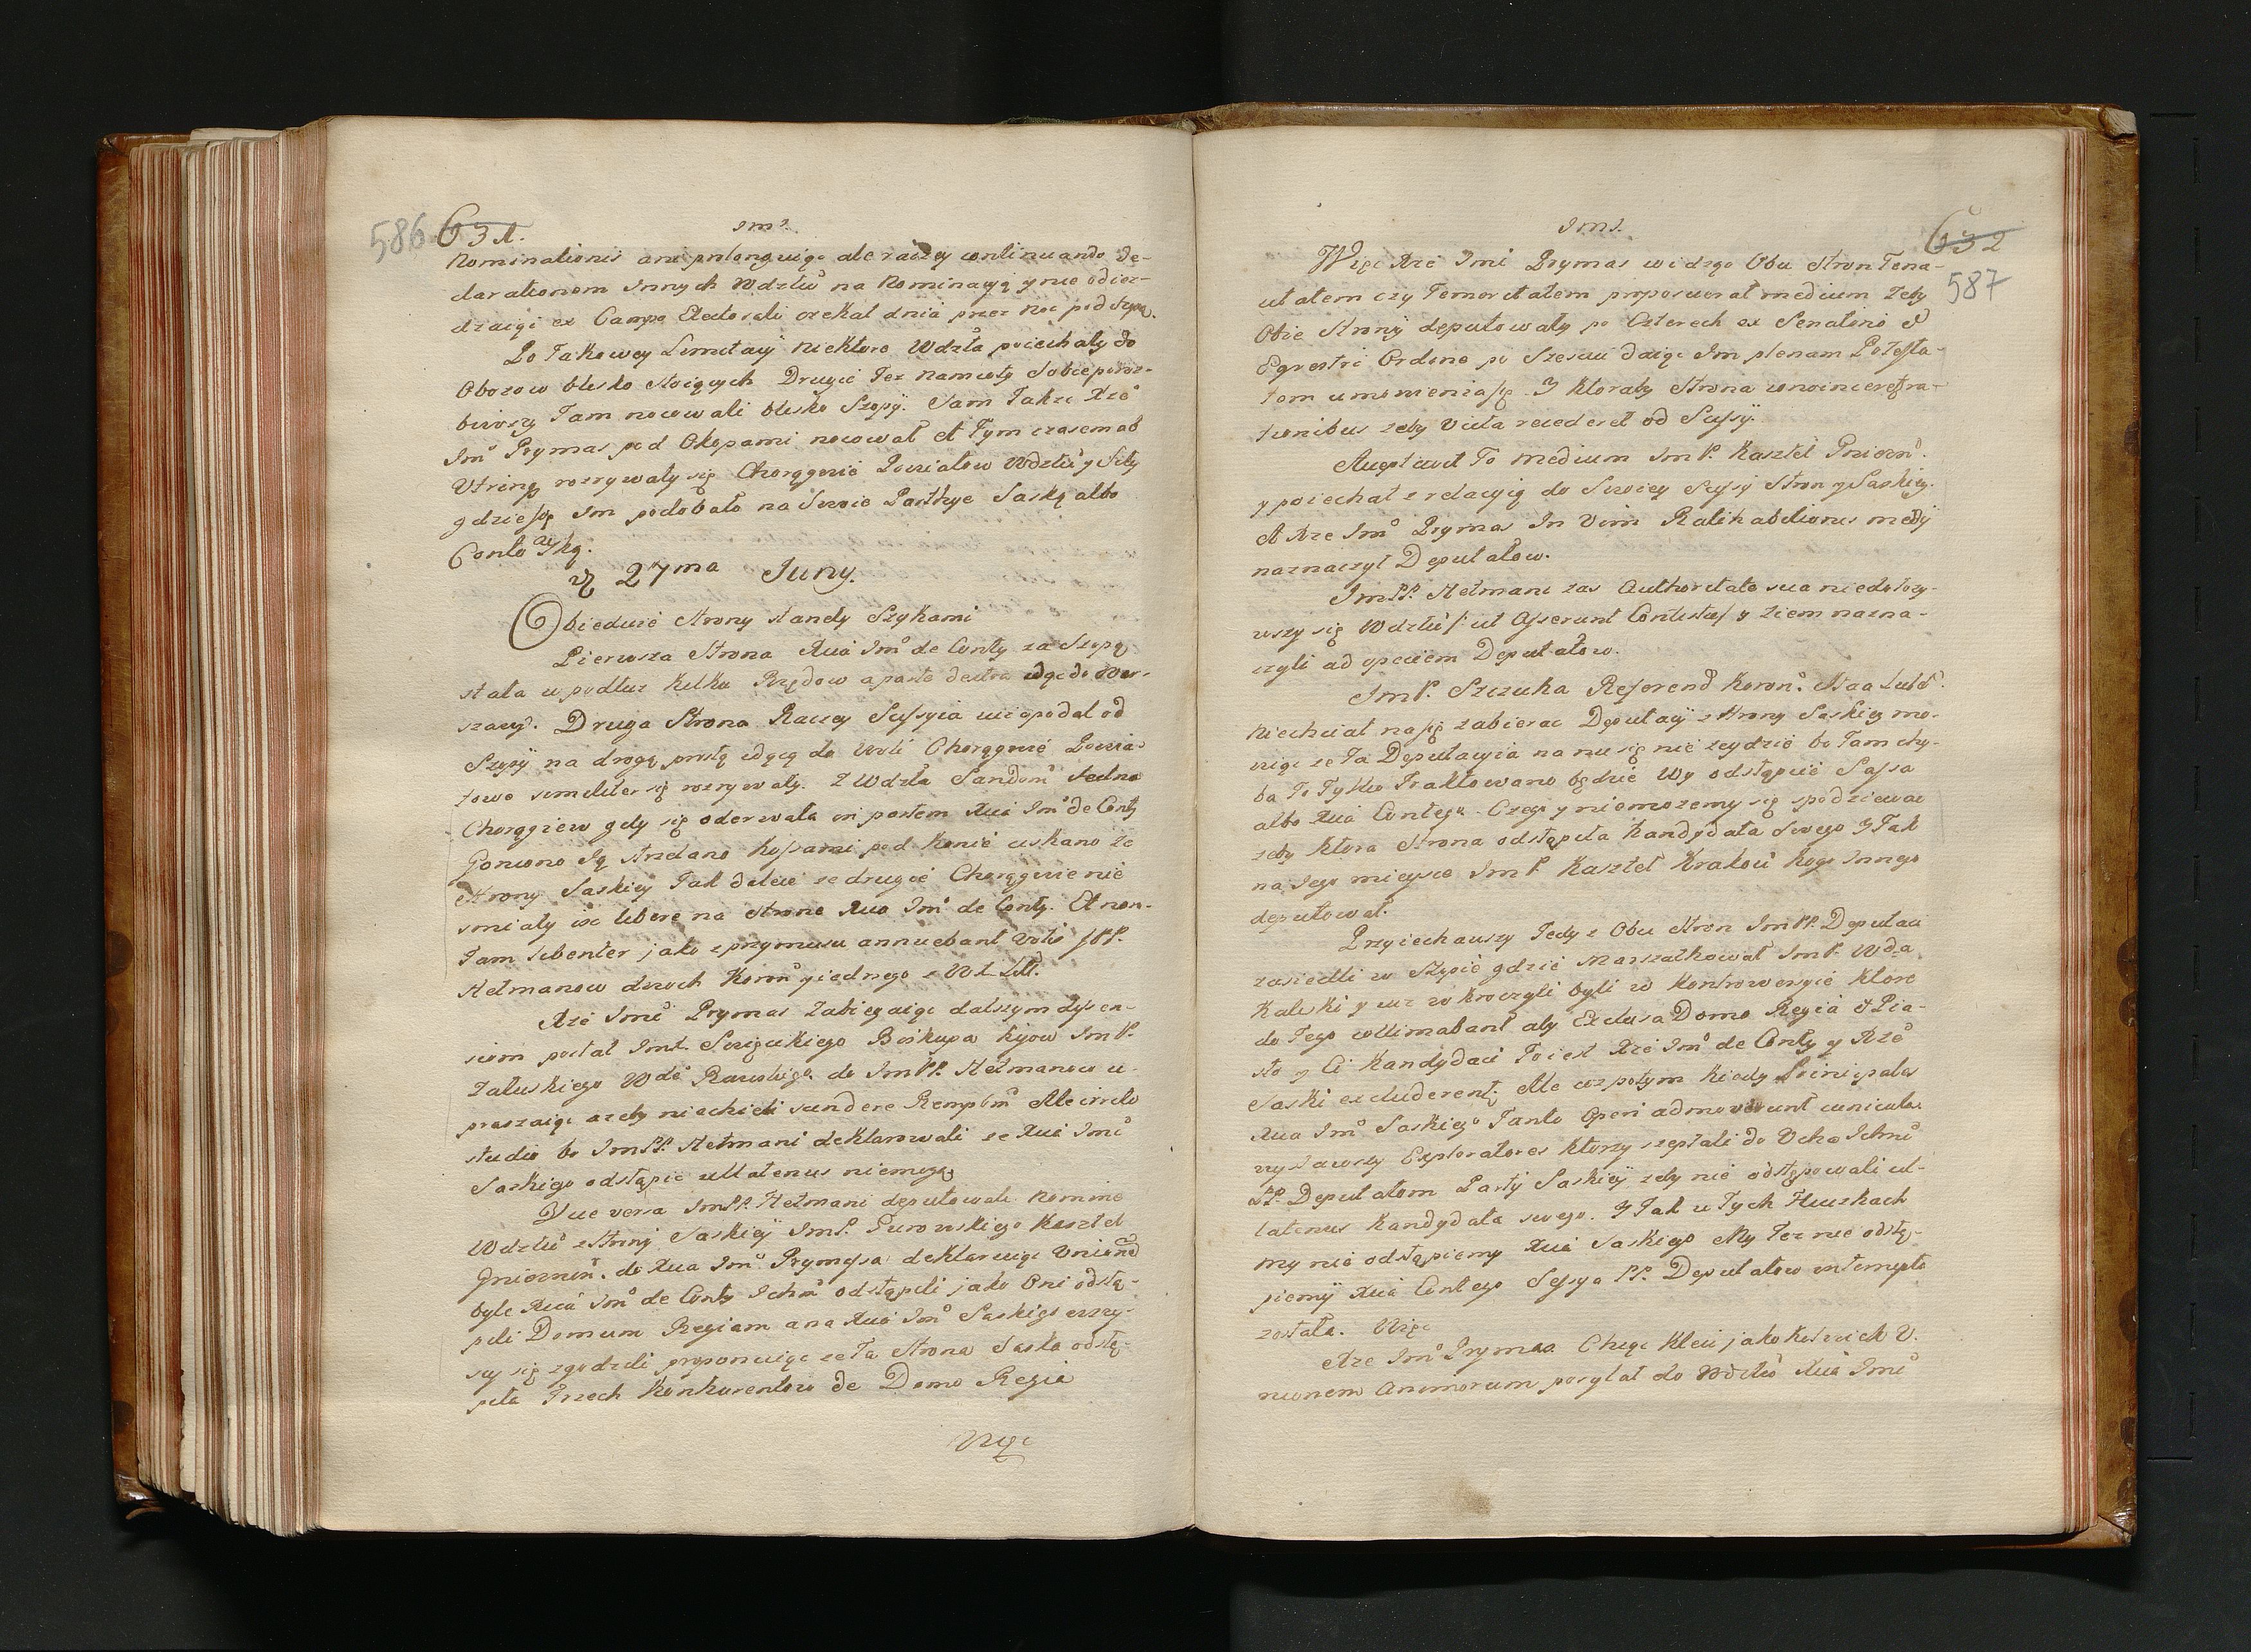 586 631.
Imś.
Nominationis ani prolonguiąc ale raczey continuando de-
clarationem Innych Wdztw na Nominacyą y nie odież-
dzaiąc ex Campo Electorali czekał dnia przez noc pod Szopą.
Po Takowey Limitacij niektore Wdztwa poiechały do
Obozow blisko stoiących Drugie Tez namioty Sobie poroz-
biwszy Tam nocowali blisko Szopÿ. Sam Takze Xże
Imć Prymas pod Okopami nocował A Tym czasem ab
Utrinq rozrywały się Chorągwie Powiatow Wdztw y
gdzie się Im podobało na Swoie Parthye Saską albo
Contoską.
27ma Juny.
Obiedwie Strony stanęły Szykami
Pierwsza Strona Xcia Imć de Conty za Szopą
stała w podłuz kilku Rzędow a parte dextra idąc do War-
szawy. Druga Strona Raczey Sassyia nieopodal od
Szopÿ na drogę prostą idącą do Woli Chorągwie Powia-
towe similiter się rozrywały. Z Wdztwa Sandom. Jedna
Chorągiew gdy się oderwała in partem Xcia Imć de Conty
Goniono Ją Strzelano Kossami pod konie ciskano ze
Strony Saskiey Tak dalece ze drugie Chorągwie nie
smiały isc libere na strone Xcia Imć de Conty. Et non-
Tam libenter jako z przymusu annuebant Voto JPP.
Hetmanow dwoch Koron. y iednego z W. Litt.
Xże Imć Prymas Zabiegaiąc dalszym dyssen-
siom posłał Imć. Swięcickiego Biskupa Kijow Im P.
Załuskiego Wdę Rawskiego do Im PP. Hetmanow u-
praszaiąc azeby niechcieli scindere Rempbm Ale irrito
studio bo Im PP. Hetmani deklarowali ze Xcia Imć
Saskiego odstąpic ullatenus niemogą
Vice versa Im PP. Hetmani deputowali Nomine
Wdztw z Strony Saskieÿ Im P. Kasztel
Gnieznin. do Xcia Imć Prymasa deklaruiąc Unionę
byle Xcia Imć de Conty Ichm odstąpili jako Oni odstą-
pili Domum Regiam a na Xcia Imć Saskiego wszy-
scy się zgodzili proponuiąc ze Ta Strona Saska odstą-
piła Trzech Konkurentow de Domo Regia
Więc
Imś.
632
587
Więc Xże Imć Prymas widząc Obu Stron Tena-
citatem czy Temeritatem proposuerat medium Zeby
Obie Stronÿ deputowały po Czterech ex Senatorio &
Equestri Ordine po Szesciu daiąc Im plenam Potesta-
tem umowienia się. Y Ktoraby Strona convinceretur ra-
tionibus zeby victa recederet od Sassÿ.
Acceptavit To medium Im P. Kasztel Gniezn.
y poiechał z relacyią do Swoiey Sessÿ Stron y Saskiey.
A Xze Imć Prymas In Vim Ratihabitionis medÿ
naznaczył Deputatow.
Im PP. Hetmani zas Authoritate sua niedołozy-
wszy się Wdztw /: ut Asserunt Contistae/ y Ziem nazna-
czyli ad speciem Deputatow.
Im P. Szczuka Referend Koron.
Niechciał na się zabierac Deputacÿ z Strony Saskiey mo-
wiąc ze Ta Deputacyia na nic się nie zeydzie bo Tam chy-
ba To Tylko Traktowano będzie Wy odstąpcie Sassa
albo Xcia Contego. Czego y niemozemy się spodziewac
zeby ktora Strona odstąpiła Kandydata Swego Y Tak
na Jego mieysce Im P. Kasztel Krakow Kogo Innego
deputował.
Przyiechawszy Tedy z Obu Stron Im PP. Deputaci
zasiedli w Szopie gdzie Marszałkował Im P. Wda
Kaliski y iuz wkroczyli byli w Kontrowersyie ktore
do Tego collimabant aby Exclusa Domo Regia & Pia-
sto y Ci Kandydaci To iest Xże Imć de Conty y Xże
Saski excluderent; Ale iuz potym kiedy Principales
Xcia Imć Saskiego Tanto Operi admoverunt cuniculos
wysławszy Exploratores ktorzy szeptali do Ucha Ichmć
PP. Deputatom Party Saskieÿ zeby nie odstępowali ul-
latenus Kandydata swego. Y Tak w Tych Fluszkach
my nie odstąpiemy Xcia Saskiego My Tez nie odstą-
piemÿ Xcia Contego Sessya PP. Deputatow interrupta
została. Więc
Xże Imć Prymas Chcąc kleic jako U-
nionem Animorum posyłał do Wdztw Xcia Imć